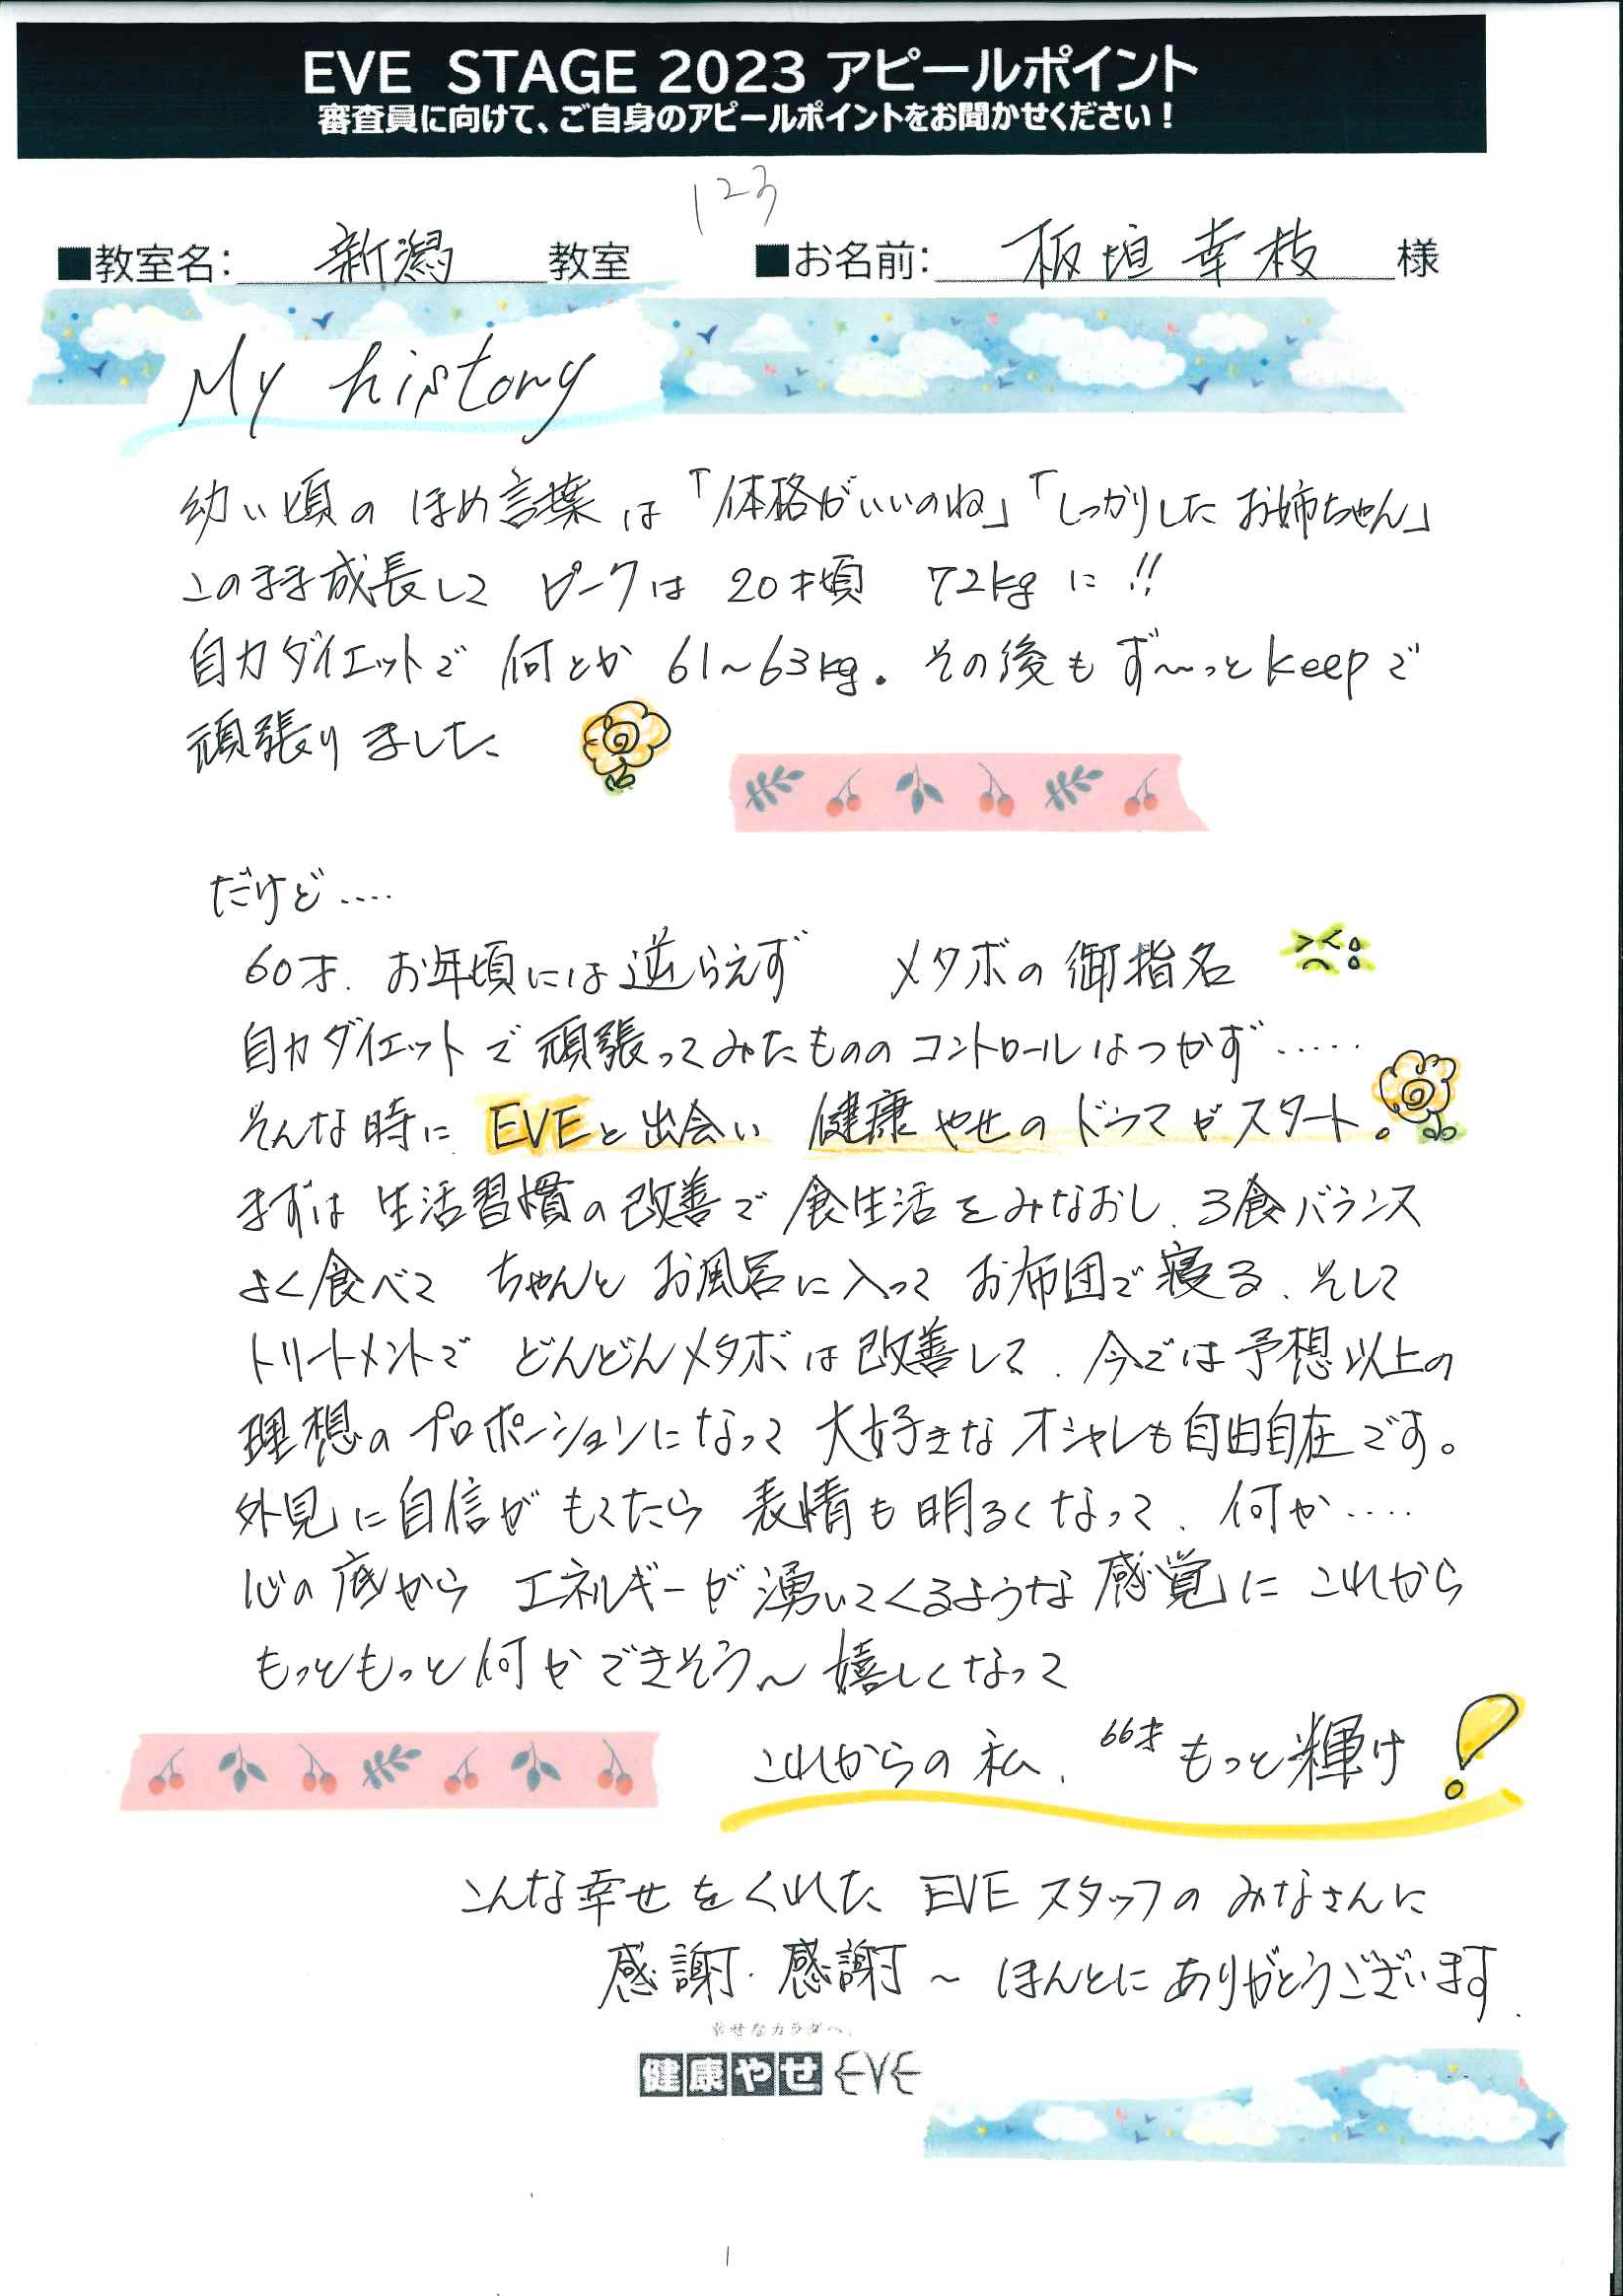 EVE STAGE 2023 アピールポイント
審査員に向けて、ご自身のアピールポイントをお聞かせください！
123
■教室名： 新潟 教室 ■お名前： 板垣 幸枝 様
My history
幼い頃の ほめ言葉 は「体格がいいのね」「しっかりした お姉ちゃん」
このまま成長して ピークは 20才頃 72kg に!!
自力ダイエットで 何とか 61～63kg. その後も ず～っと keepで
頑張りました
だけど‥‥
60才. お年頃には逆らえず メタボの 御指名
自力ダイエットで 頑張ってみたものの コントロールはつかず‥‥‥
そんな時に EVEと出会い 健康やせのドラマがスタート。
まずは 生活習慣の改善で 食生活をみなおし、3食バランス
よく食べて ちゃんと お風呂に入って お布団で寝る、そして
トリートメントで どんどんメタボは改善して、今では予想以上の
理想のプロポーションになって 大好きなオシャレも自由自在です。
外見に自信が もてたら 表情も明るくなって、何か‥‥
心の底から エネルギーが湧いてくるような感覚に これから
もっともっと何かできそう～ 嬉しくなって
これからの私、66才 もっと輝け!
こんな幸せをくれた EVEスタッフの みなさんに
感謝・感謝～ ほんとにありがとうございます.
幸せなカラダへ。
健康やせ EVE
1